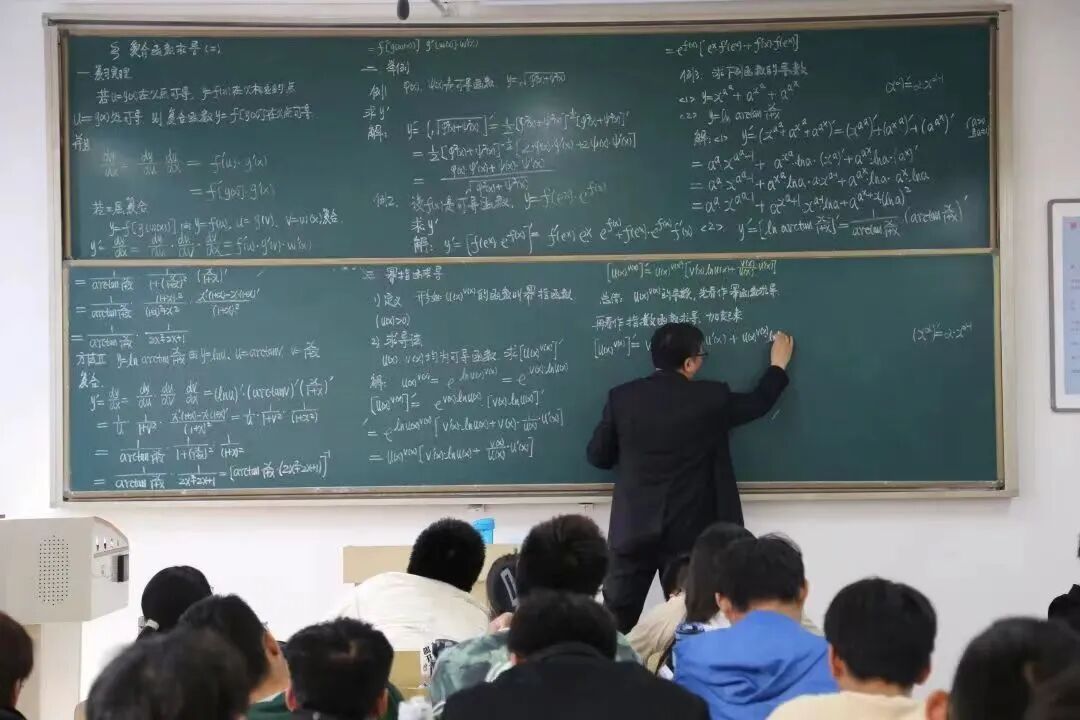 复合函数求导(二)
一 复习定理
若u=g(x)在x点可导, y=f(u)在x相应的点
u=g(x)处可导 则 复合函数y=f[g(x)]在x点可导
并且
dy/dx = dy/du · du/dx = f'(u)·g'(x)
= f'[g(x)]·g'(x)
若三层复合
y=f[g(u(x))] 由 y=f(u), u=g(v), v=u(x)复合
= f'[g(u(x))] g'(u(x))·u'(x)
二 举例
例1 φ(x), ψ(x)为可导函数, y=√(φ²(x)+ψ²(x))
求y'
解: y'=[√(φ²(x)+ψ²(x))]'=1/2[φ²(x)+ψ²(x)]^(-1/2)[φ²(x)+ψ²(x)]'
=1/2[φ²(x)+ψ²(x)]^(-1/2)[2φ(x)·φ'(x)+2ψ(x)·ψ'(x)]
= (φ(x)·φ'(x)+ψ(x)·ψ'(x))/√(φ²(x)+ψ²(x))
例2. 设f(x)为可导函数, y=f(e^x)·e^f(x)
求y'
解: y'=[f(e^x)·e^f(x)]'=f'(e^x)·e^x·e^f(x)+f(e^x)·e^f(x)·f'(x)
=e^f(x)[e^x f'(e^x)+f'(x)·f(e^x)]
例3. 求下列函数的导数
<1> y=x^(a^a)+a^(x^a)+a^(a^x)
<2> y=ln arctan x/(1+x)
解:<1> y'=(x^(a^a)+a^(x^a)+a^(a^x))'=(x^(a^a))'+(a^(x^a))'+(a^(a^x))'
= a^a x^(a^a-1)+a^(x^a)·lna·(x^a)'+a^(a^x)·lna·(a^x)'
= a^a x^(a^a-1)+a^(x^a)lna·a·x^(a-1)+a^(a^x)lna·a^x lna
<2> y'=[ln arctan x/(1+x)]'=1/(arctan x/(1+x))·(arctan x/(1+x))'
(x^α)'=α·x^(α-1)
= 1/(arctan x/(1+x)) · 1/(1+(x/(1+x))²) · (x/(1+x))'
= 1/(arctan x/(1+x)) · (1+x)²/((1+x)²+x²) · (x'(1+x)-x(1+x)')/(1+x)²
= 1/(arctan x/(1+x)) · 1/(2x²+2x+1)
方法Ⅱ y=ln arctan x/(1+x) 由 y=lnu, u=arctanv, v=x/(1+x)
复合.
y'=dy/dx=dy/du·du/dv·dv/dx=(lnu)'·(arctanv)'·(x/(1+x))'
= 1/u · 1/(1+v²) · (x'(1+x)-x(1+x)')/(1+x)² = 1/u · 1/(1+v²) · 1/(1+x)²
= 1/(arctan x/(1+x)) · 1/(1+(x/(1+x))²) · 1/(1+x)²
= 1/(arctan x/(1+x)) · 1/(2x²+2x+1) = [arctan x/(1+x)·(2x²+2x+1)]^(-1)
三 幂指函数求导
1) 定义 形如u(x)^v(x)的函数叫幂指函数
(u(x)>0)
2) 求导法
u(x), v(x)均为可导函数 求[u(x)^v(x)]'
解: u(x)^v(x)=e^(lnu(x)^v(x))=e^(v(x)·lnu(x))
[u(x)^v(x)]'=e^(v(x)·lnu(x))·[v(x)·lnu(x)]'
=e^(lnu(x)^v(x))[v'(x)·lnu(x)+v(x)·1/u(x)·u'(x)]
=u(x)^v(x)[v'(x)·lnu(x)+v(x)/u(x)·u'(x)]
[u(x)^v(x)]'=u(x)^v(x)[v'(x)lnu(x)+v(x)/u(x)·u'(x)]
总结: u(x)^v(x)的导数, 先看作幂函数求导
再看作指数函数求导, 加起来
[u(x)^v(x)]'= v
u'(x)+u(x)^v(x)·ln
(x^α)'=α·x^(α-1)